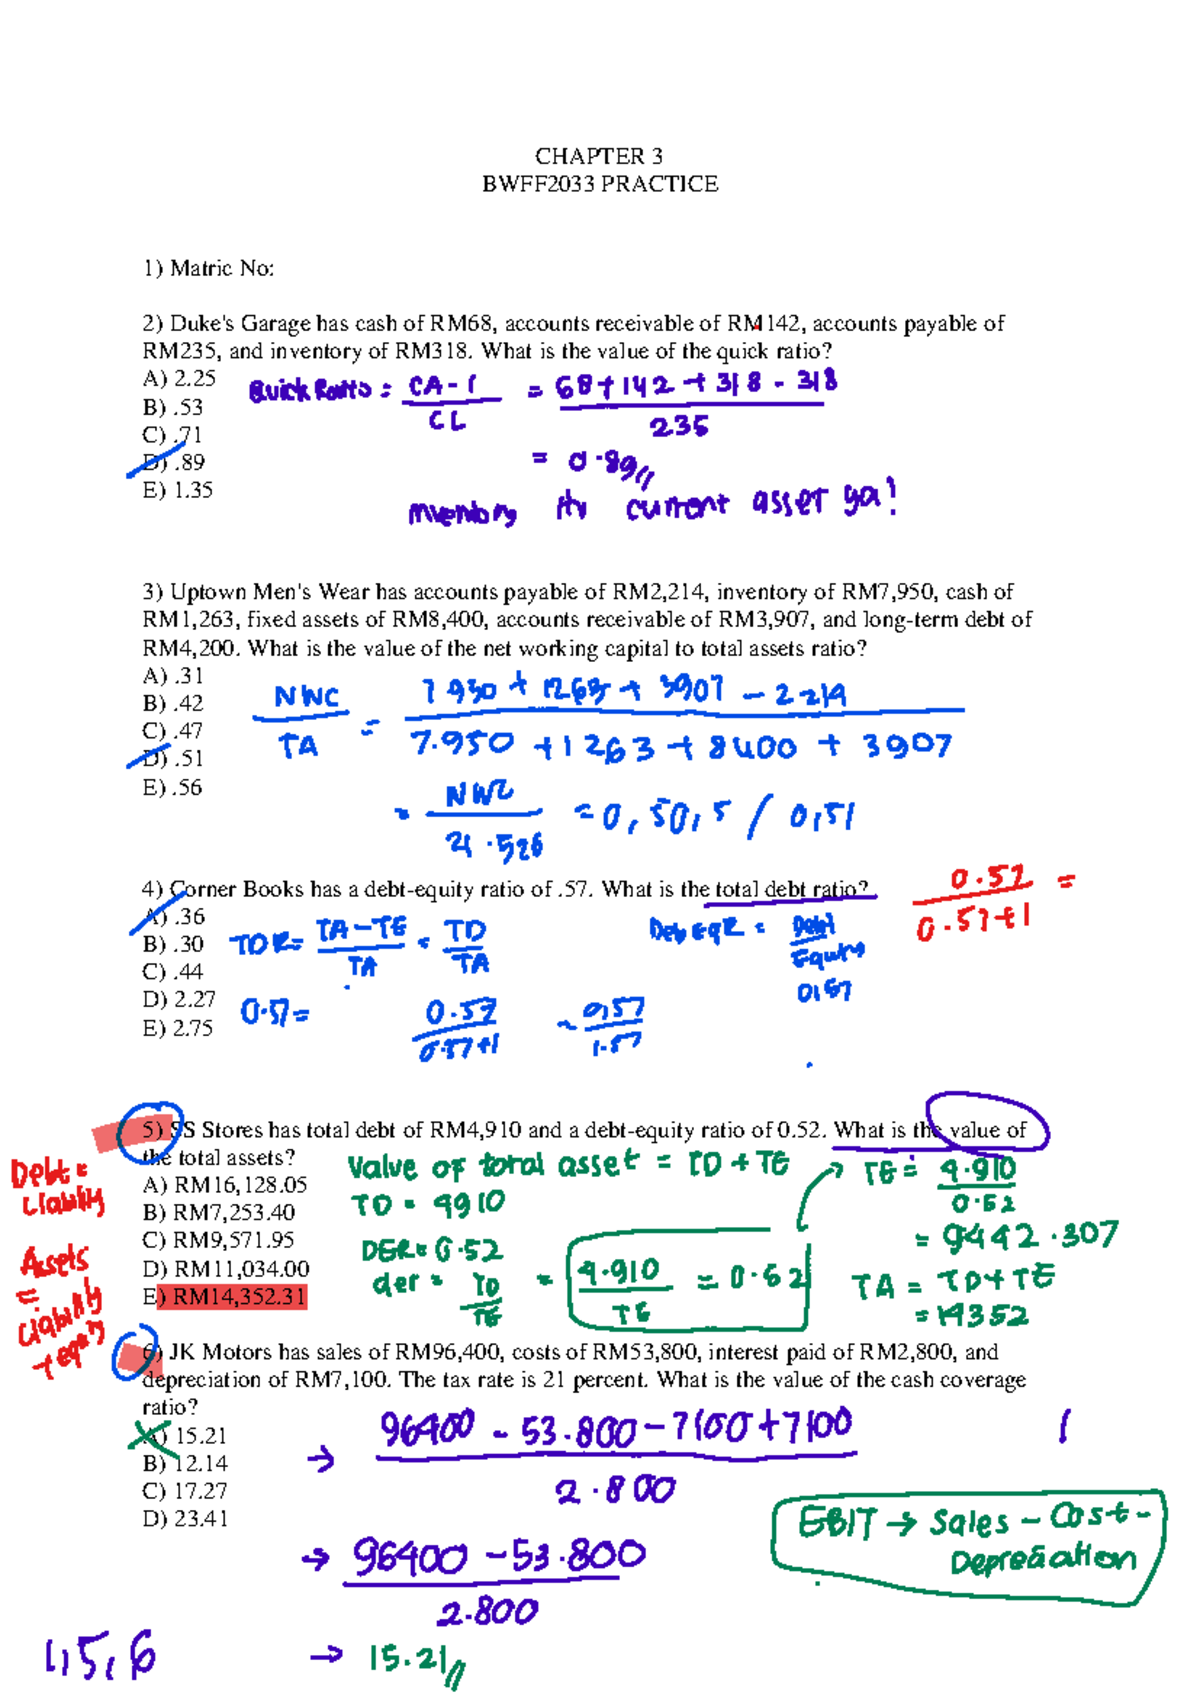 CHAPTER 3
BWFF2033 PRACTICE
1) Matric No:
2) Duke's Garage has cash of RM68, accounts receivable of RM142, accounts payable of
RM235, and inventory of RM318. What is the value of the quick ratio?
A) 2.25
Quick Ratio = CA - I / CL = 68 + 142 + 318 - 318 / 235
B) .53
C) .71
D) .89
= 0.89//
E) 1.35
inventory itu current asset ya!
3) Uptown Men's Wear has accounts payable of RM2,214, inventory of RM7,950, cash of
RM1,263, fixed assets of RM8,400, accounts receivable of RM3,907, and long-term debt of
RM4,200. What is the value of the net working capital to total assets ratio?
A) .31
B) .42
C) .47
D) .51
E) .56
NWC / TA = 7950 + 1263 + 3907 - 2214 / 7.950 + 1263 + 8400 + 3907
= NWC / 21.520 = 0,50,5 / 0,51
4) Corner Books has a debt-equity ratio of .57. What is the total debt ratio?
0.57 / 0.57+1 =
A) .36
B) .30
TDR = TA - TE / TA = TD / TA
Deb EqR = Debt / Equity
0,57
C) .44
D) 2.27
0.57 =
0.57 / 0.57+1
= 0,57 / 1.57
E) 2.75
5) SS Stores has total debt of RM4,910 and a debt-equity ratio of 0.52. What is the value of
the total assets?
A) RM16,128.05
B) RM7,253.40
C) RM9,571.95
D) RM11,034.00
E) RM14,352.31
Debt =
Liability
Assets
=
Liability
+ equity
Value of total asset = TD + TE
TD = 4910
DER = 0.52
der = TD / TE = 4.910 / TE = 0.52
→ TE = 4.910 / 0.52
= 9442.307
TA = TD + TE
= 14352
6) JK Motors has sales of RM96,400, costs of RM53,800, interest paid of RM2,800, and
depreciation of RM7,100. The tax rate is 21 percent. What is the value of the cash coverage
ratio?
A) 15.21
B) 12.14
C) 17.27
D) 23.41
→ 96400 - 53.800 - 7100 + 7100 / 2.800
EBIT → Sales - Cost -
Depreciation
→ 96400 - 53.800 / 2.800
→ 15.21//
1,5,6